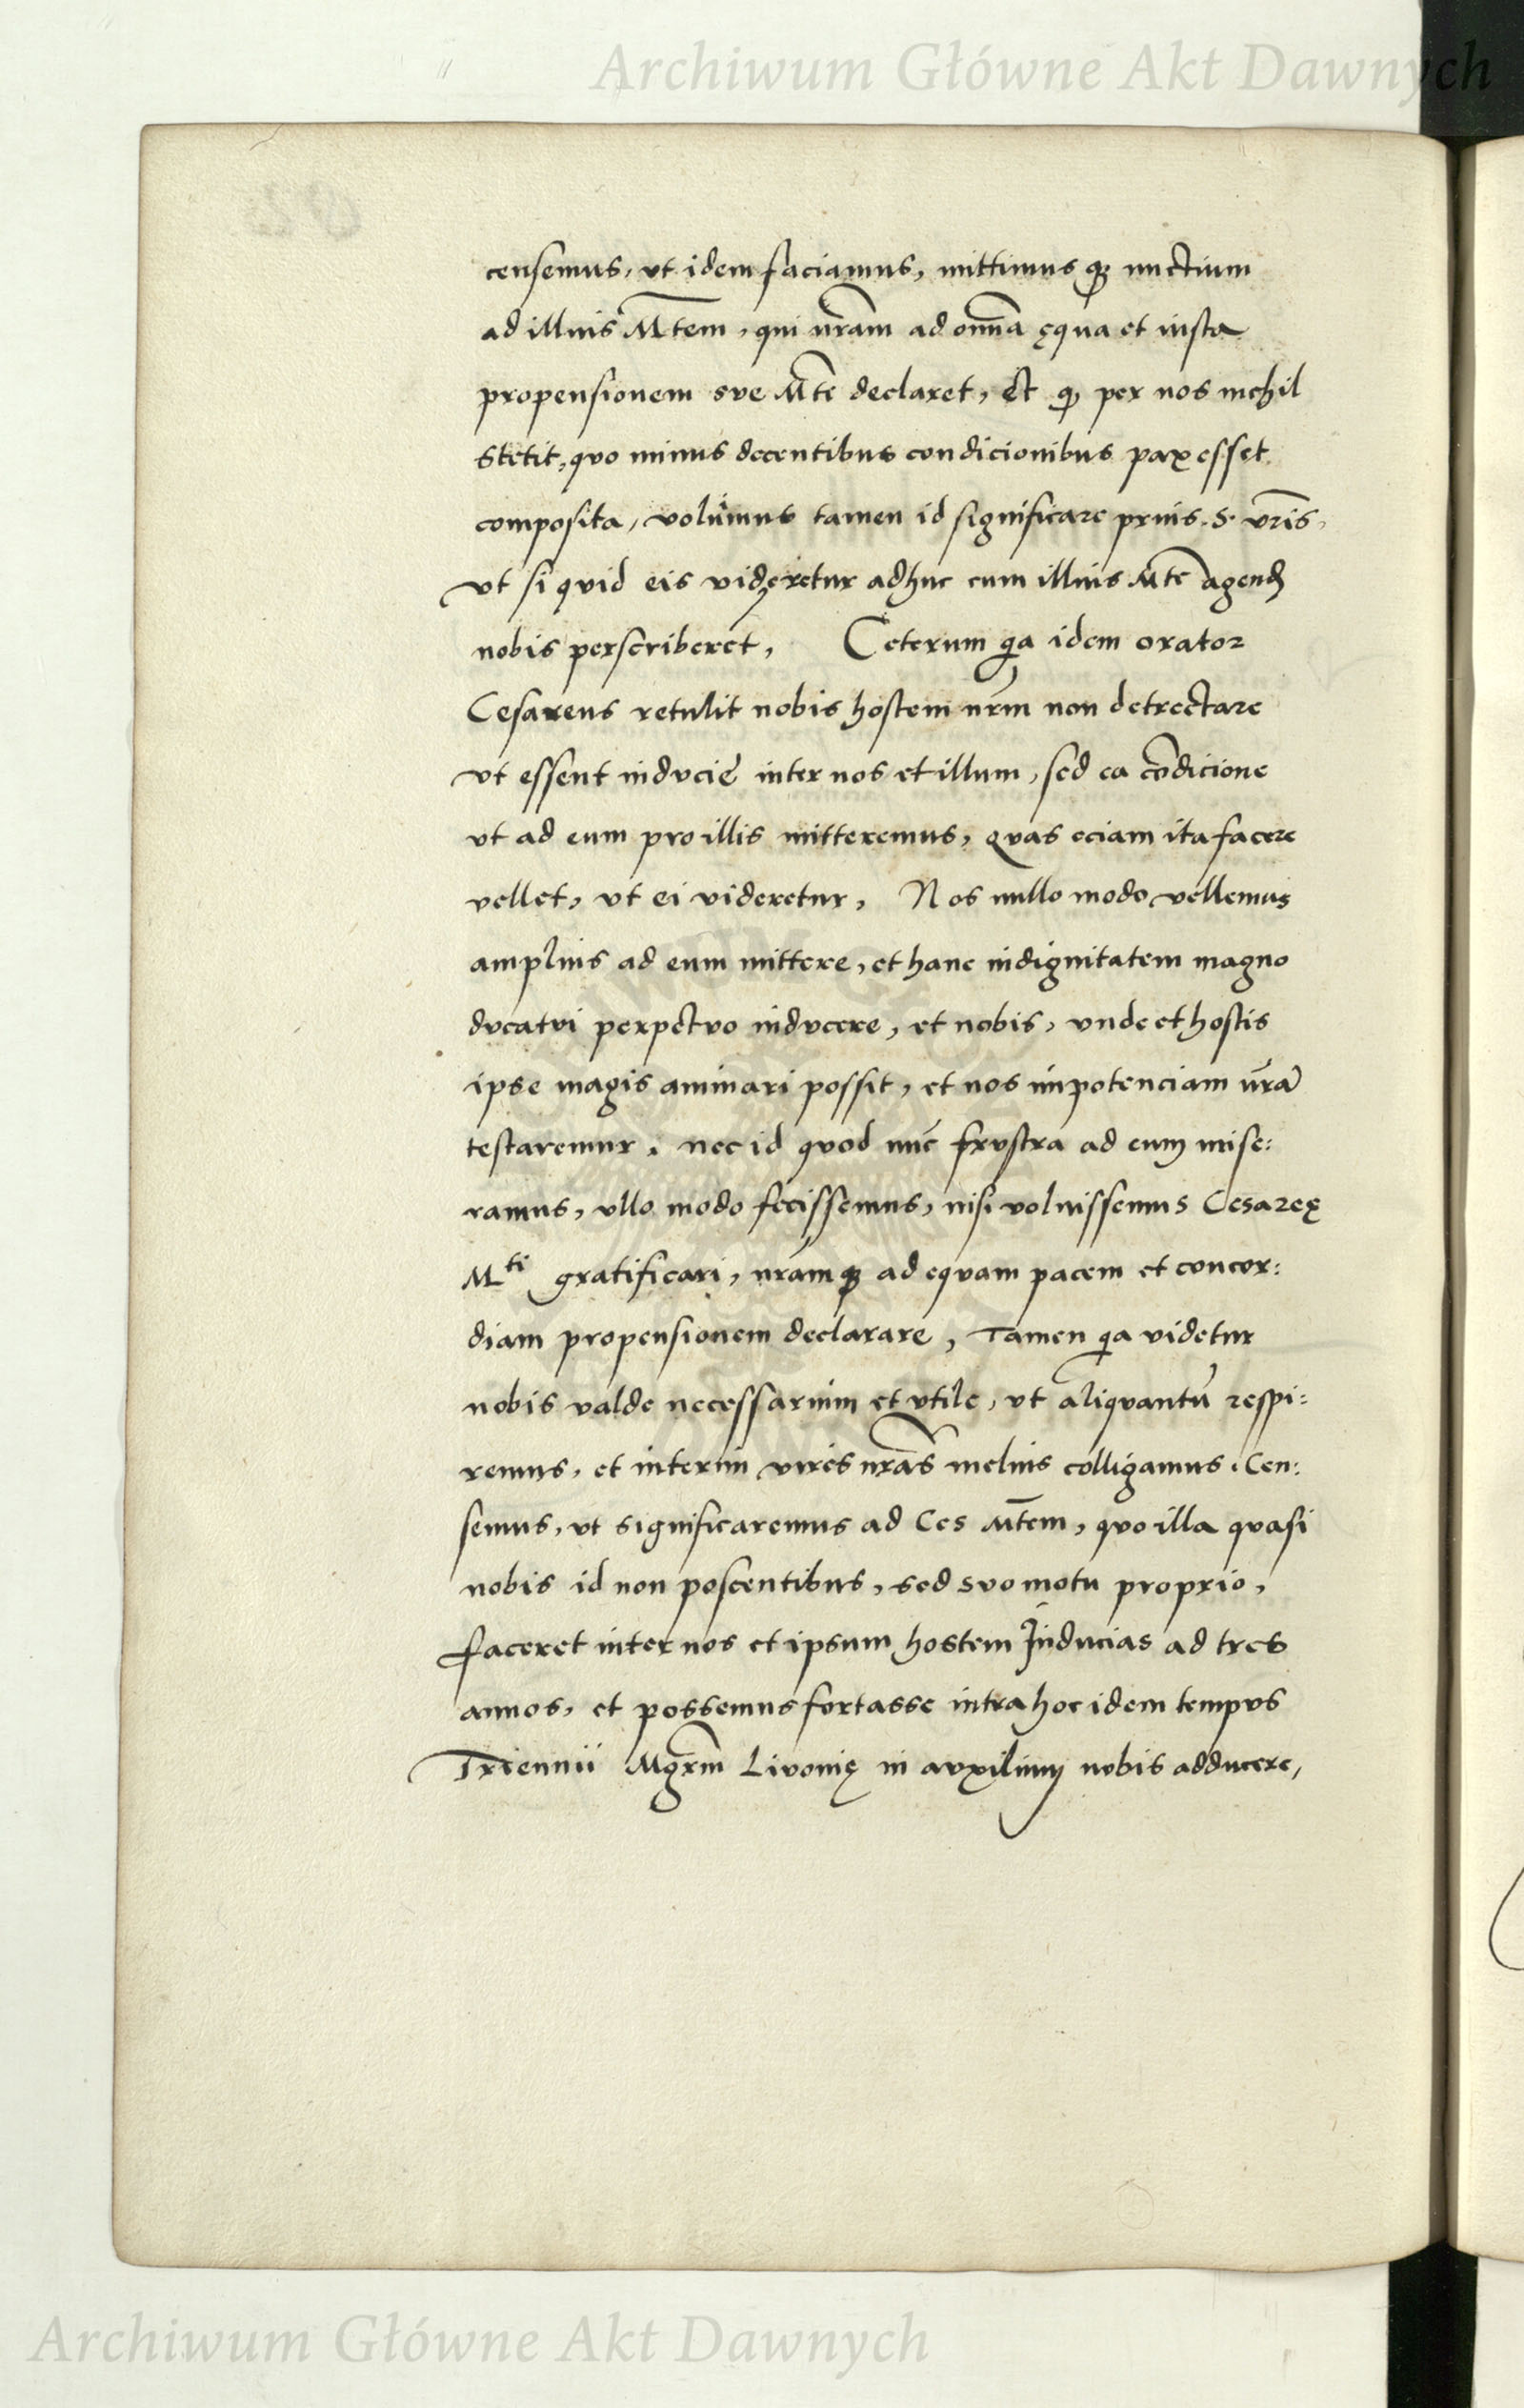 Archiwum Główne Akt Dawnych
censemus, vt idem faciamus, mittimus qꝫ nuctium
ad illius M̄tem, qui nr̄am ad om̄ia ęqua et iusta
propensionem sve M̄te declaret, et ꝙ per nos nichil
stetit, qvo minus decentibus condicionibus pax esset
composita, volumus tamen id significare prius. S. vr̄is,
vt si qvid eis videretur adhuc cum illius M̄te agend
nobis perscriberet, Ceterum qa idem orator
Cesareus retulit nobis hostem nr̄m non detrectare
vt essent indvcie inter nos et illum, sed ea cōdicione
vt ad eum pro illis mitteremus, qvas eciam ita facere
vellet, vt ei videretur, Nos nullo modo vellemus
amplius ad eum mittere, et hanc indignitatem magno
dvcatvi perpetvo indvcere, et nobis, vnde et hostis
ipse magis aminari possit, et nos impotenciam nr̄ā
testaremur, nec id qvod nūc frvstra ad eum mise:
ramus, vllo modo fecissemus, nisi voluissemus Cesareę
Mti gratificari, nr̄amqꝫ ad eqvam pacem et concor:
diam propensionem declarare, Tamen qa videtur
nobis valde necessarium et vtile, vt aliqvantū respi:
remus, et interim vires nr̄as melius colligamus. Cen:
semus, vt significaremus ad Ces M̄tem, qvo illa qvasi
nobis id non poscentibus, sed svo motu proprio,
faceret inter nos et ipsum hostem Inducias ad tres
annos, et possemus fortasse intra hoc idem tempvs
Triennii Mgr̄m Livonię in avxilium nobis adducere,
Archiwum Główne Akt Dawnych